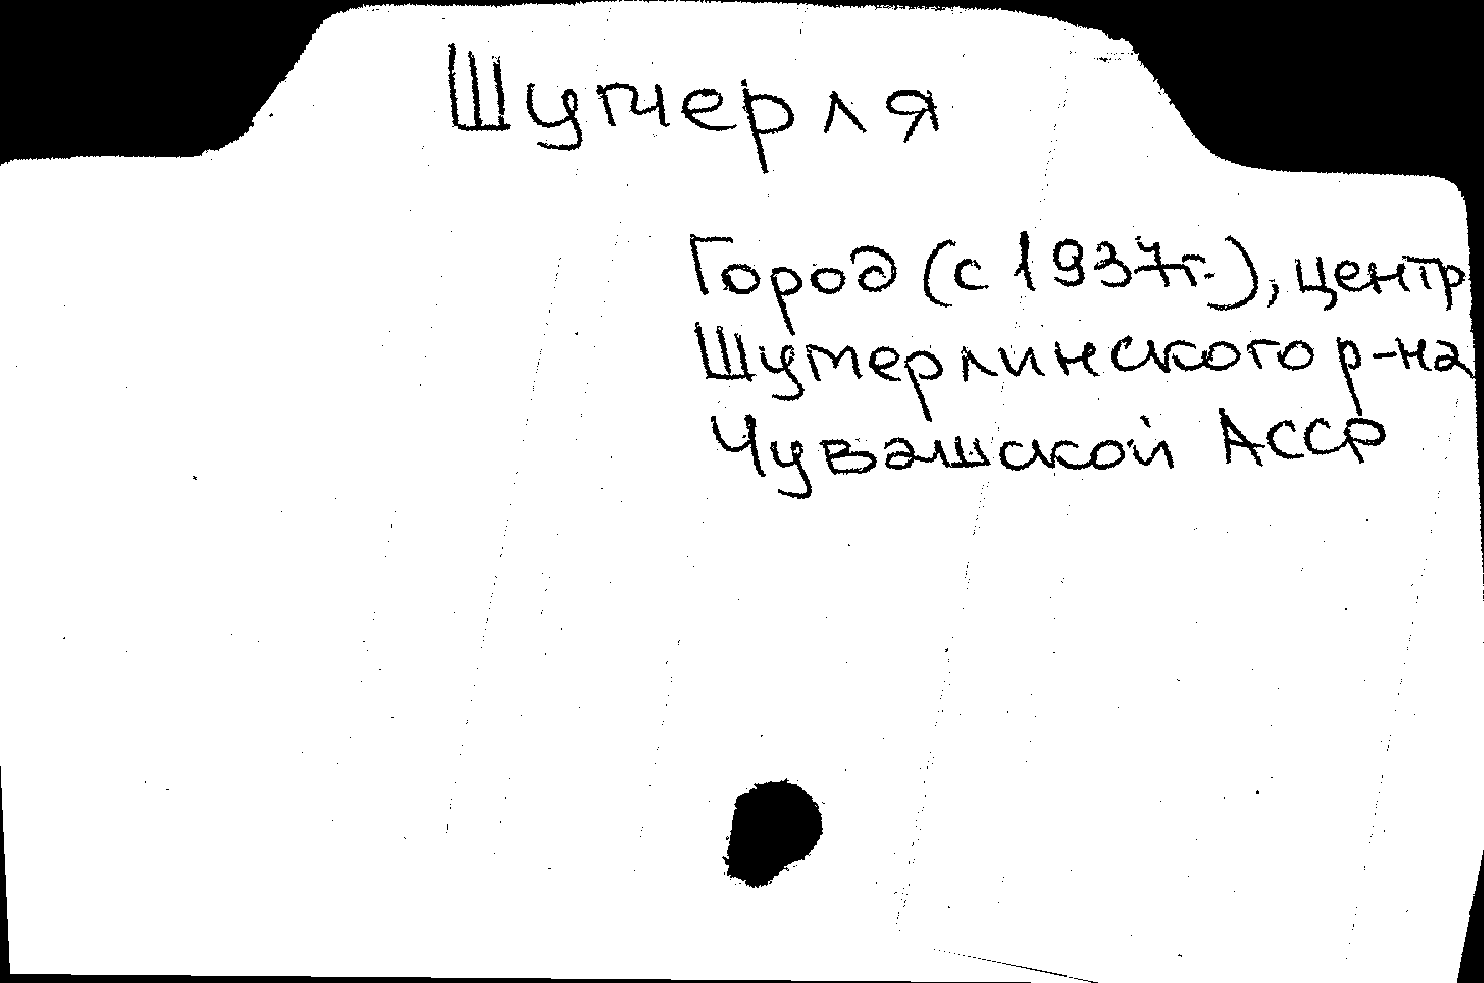 Шумерля
Город (с 1937г.), центр
Шумерлинского р-на
Чувашской АССР